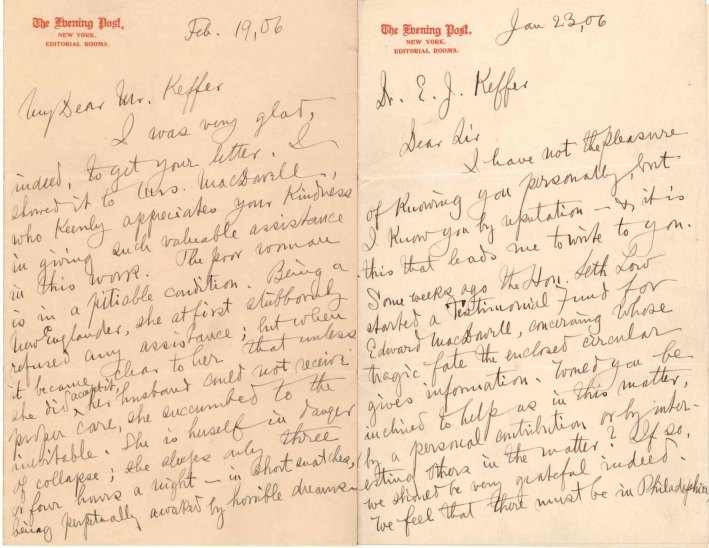 The Evening Post,
NEW YORK.
EDITORIAL ROOMS.
Feb. 19, 06
My Dear Mr. Keffer
I was very glad,
indeed, to get your letter. I
showed it to Mrs. MacDowell,
who keenly appreciates your kindness
in giving such valuable assistance
in this work. The poor woman
is in a pitiable condition. Being a
New Englander, she at first stubbornly
refused any assistance; but when
it became clear to her that unless
she did accept, her husband could not receive
proper care, she succumbed to the
inevitable. She is herself in danger
of collapse; she sleeps only three
or four hours a night — in short snatches,
being perpetually awaked by horrible dreams —
The Evening Post,
NEW YORK.
EDITORIAL ROOMS.
Jan 23, 06
Dr. E. J. Keffer
Dear Sir
I have not the pleasure
of knowing you personally but
I know you by reputation — & it is
this that leads me to write to you.
Some weeks ago the Hon. Seth Low
started a Testimonial Fund for
Edward MacDowell, concerning whose
tragic fate the enclosed circular
gives information. Would you be
inclined to help us in this matter,
by a personal contribution or by inter-
esting others in the matter? If so,
we should be very grateful indeed.
We feel that there must be in Philadelphia